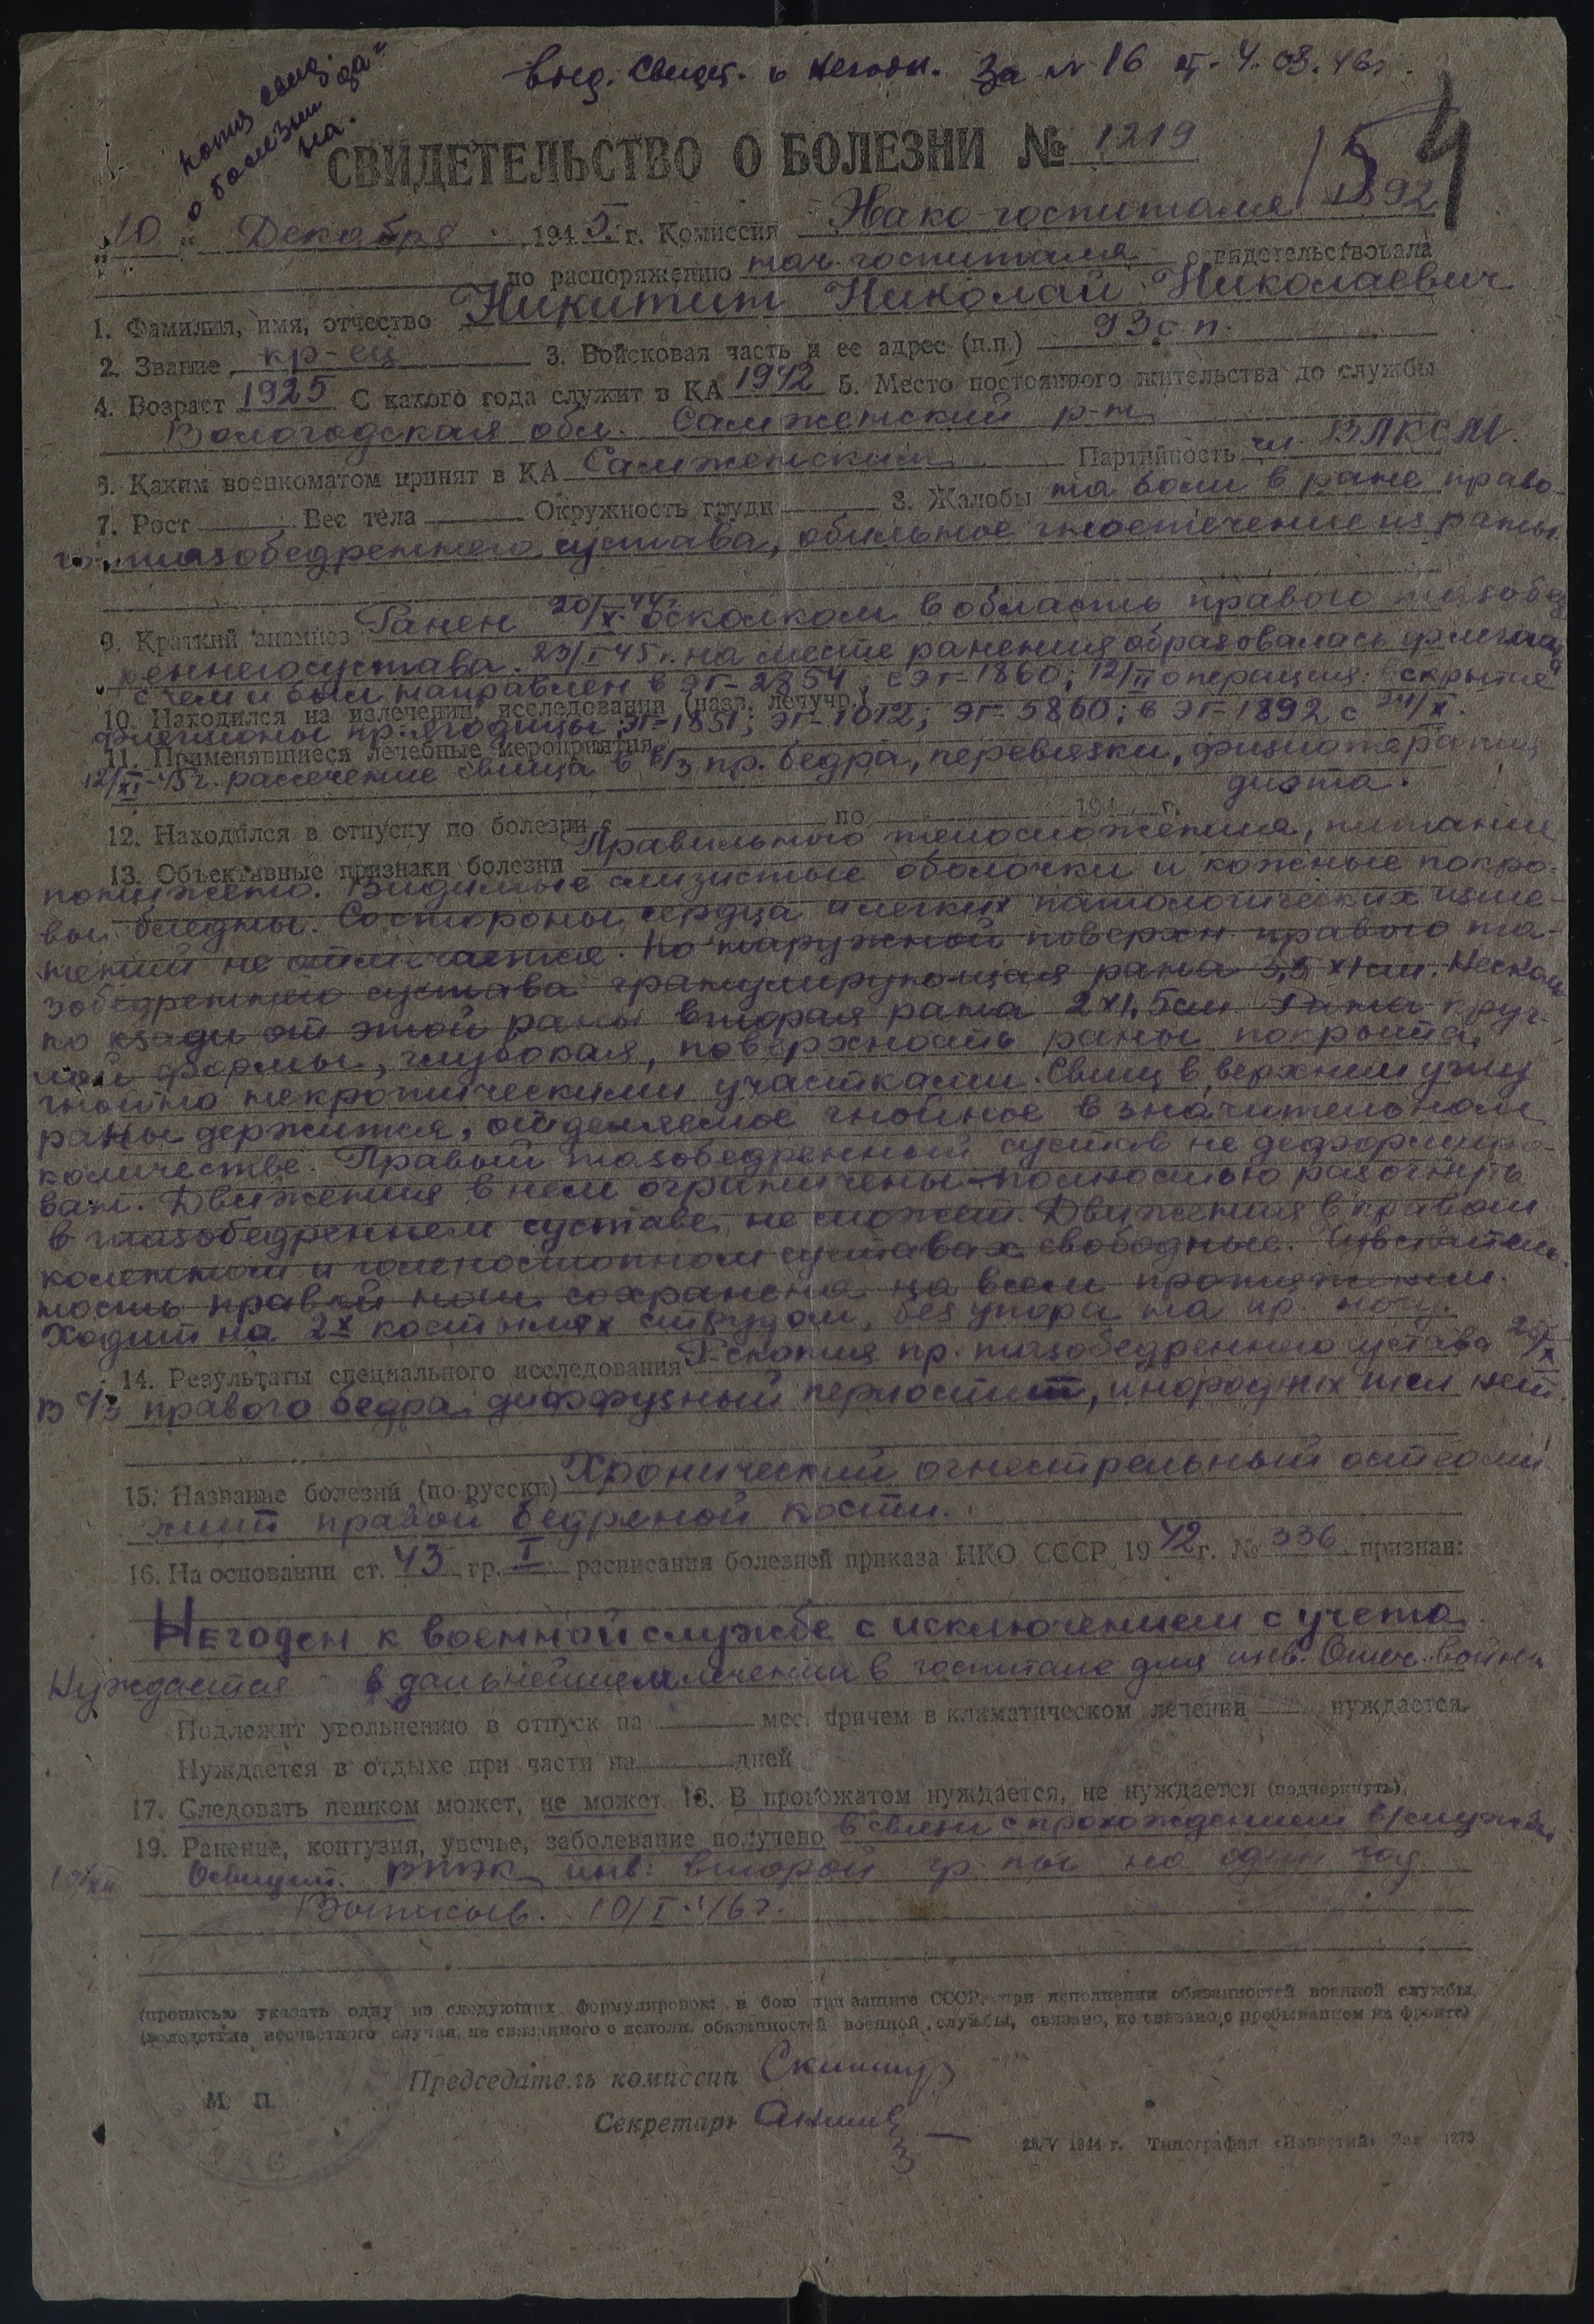 выд. Свидет. о негодн. За № 16 от 4.03.46г.
копия свид.
о болезни
на.
СВИДЕТЕЛЬСТВО О БОЛЕЗНИ № 1219
15 4
"10" Декабря 1945 г. Комиссия Эвако-госпиталя 1892
по распоряжению нач. госпиталя освидетельствовала
1. Фамилия, имя, отчество Никитин Николай Николаевич
2. Звание кр-ец 3. Войсковая часть и ее адрес (п.п.) 93 с.п.
4. Возраст 1925 С какого года служит в КА 1942 5. Место постоянного жительства до службы
Вологодская обл. Сямженский р-н
6. Каким военкоматом принят в КА Сямженским Партийность чл. ВЛКСМ.
7. Рост Вес тела Окружность груди 8. Жалобы на боли в ране право-
го тазобедренного сустава, обильное гноетечение из раны.
9. Краткий анамнез Ранен 20/X-44г. осколком в область правого тазобед
ренного сустава. 23/I 45г. на месте ранения образовалась флегмона
с чем и был направлен в ЭГ-2854; с ЭГ-1860; 12/II операция: вскрытие
10. Находился на излечении, исследовании (назв. лечучр.)
флегмоны пр. ягодицы; ЭГ-1851; ЭГ-1012; ЭГ-5860; в ЭГ-1892 с 24/X.
11. Применявшиеся лечебные мероприятия
12/XI-45г. рассечение свища в в/3 пр. бедра, перевязки, физиотерапия
диэта.
12. Находился в отпуску по болезни с по 194 г.
13. Объективные признаки болезни Правильного телосложения, питание
понижено. Видимые слизистые оболочки и кожные покро-
вы бледны. Со стороны сердца и легких патологических изме-
нений не отмечается. По наружной поверхн правого та-
зобедренного сустава гранулирующая рана 3,5 х 1 см. Несколь
ко кзади от этой раны вторая рана 2 х 1,5 см Рана круг-
лой формы, глубокая, поверхность раны покрыта
гнойно некротическими участками. Свищ в верхнем углу
раны держится, отделяемое гнойное в значительном
количестве. Правый тазобедренный сустав не деформиро-
ван. Движения в нем ограничены полностью разогнуть
в тазобедренном суставе не может. Движения в правом
коленном и голеностопном суставах свободные. Чувствитель-
ность правой ноги сохранена на всем протяжении.
Ходит на 2х костылях с трудом, без упора на пр. ногу.
14. Результаты специального исследования R-скопия пр. тазобедренного сустава 25/X
В с/3 правого бедра диффузный периостит, инородных тел нет.
15. Название болезни (по-русски) Хронический огнестрельный остеоми
элит правой бедреной кости.
16. На основании ст. 43 гр. I расписания болезней приказа НКО СССР 1942 г. № 336 признан:
Негоден к военной службе с исключением с учета
Нуждается в дальнейшем лечении в госпитале для инв. Отеч. войны
Подлежит увольнению в отпуск на мес. причем в климатическом лечении нуждается.
Нуждается в отдыхе при части на дней
17. Следовать пешком может, не может 18. В провожатом нуждается, не нуждается (подчеркнуть).
19. Ранение, контузия, увечье, заболевание получено в связи с прохождением в/службы
Освидет. ВТЭК инв: второй гр. на один год
10/I-46г.
(прописью указать одну из следующих формулировок: в бою при защите СССР, при исполнении обязанностей военной службы,
вследствие несчастного случая, не связанного с исполн. обязанностей военной службы, связано, не связано с пребыванием на фронте)
Председатель комиссии
М. П.
Секретарь
28/V 1944 г. Типография «Известий» Зак 1273